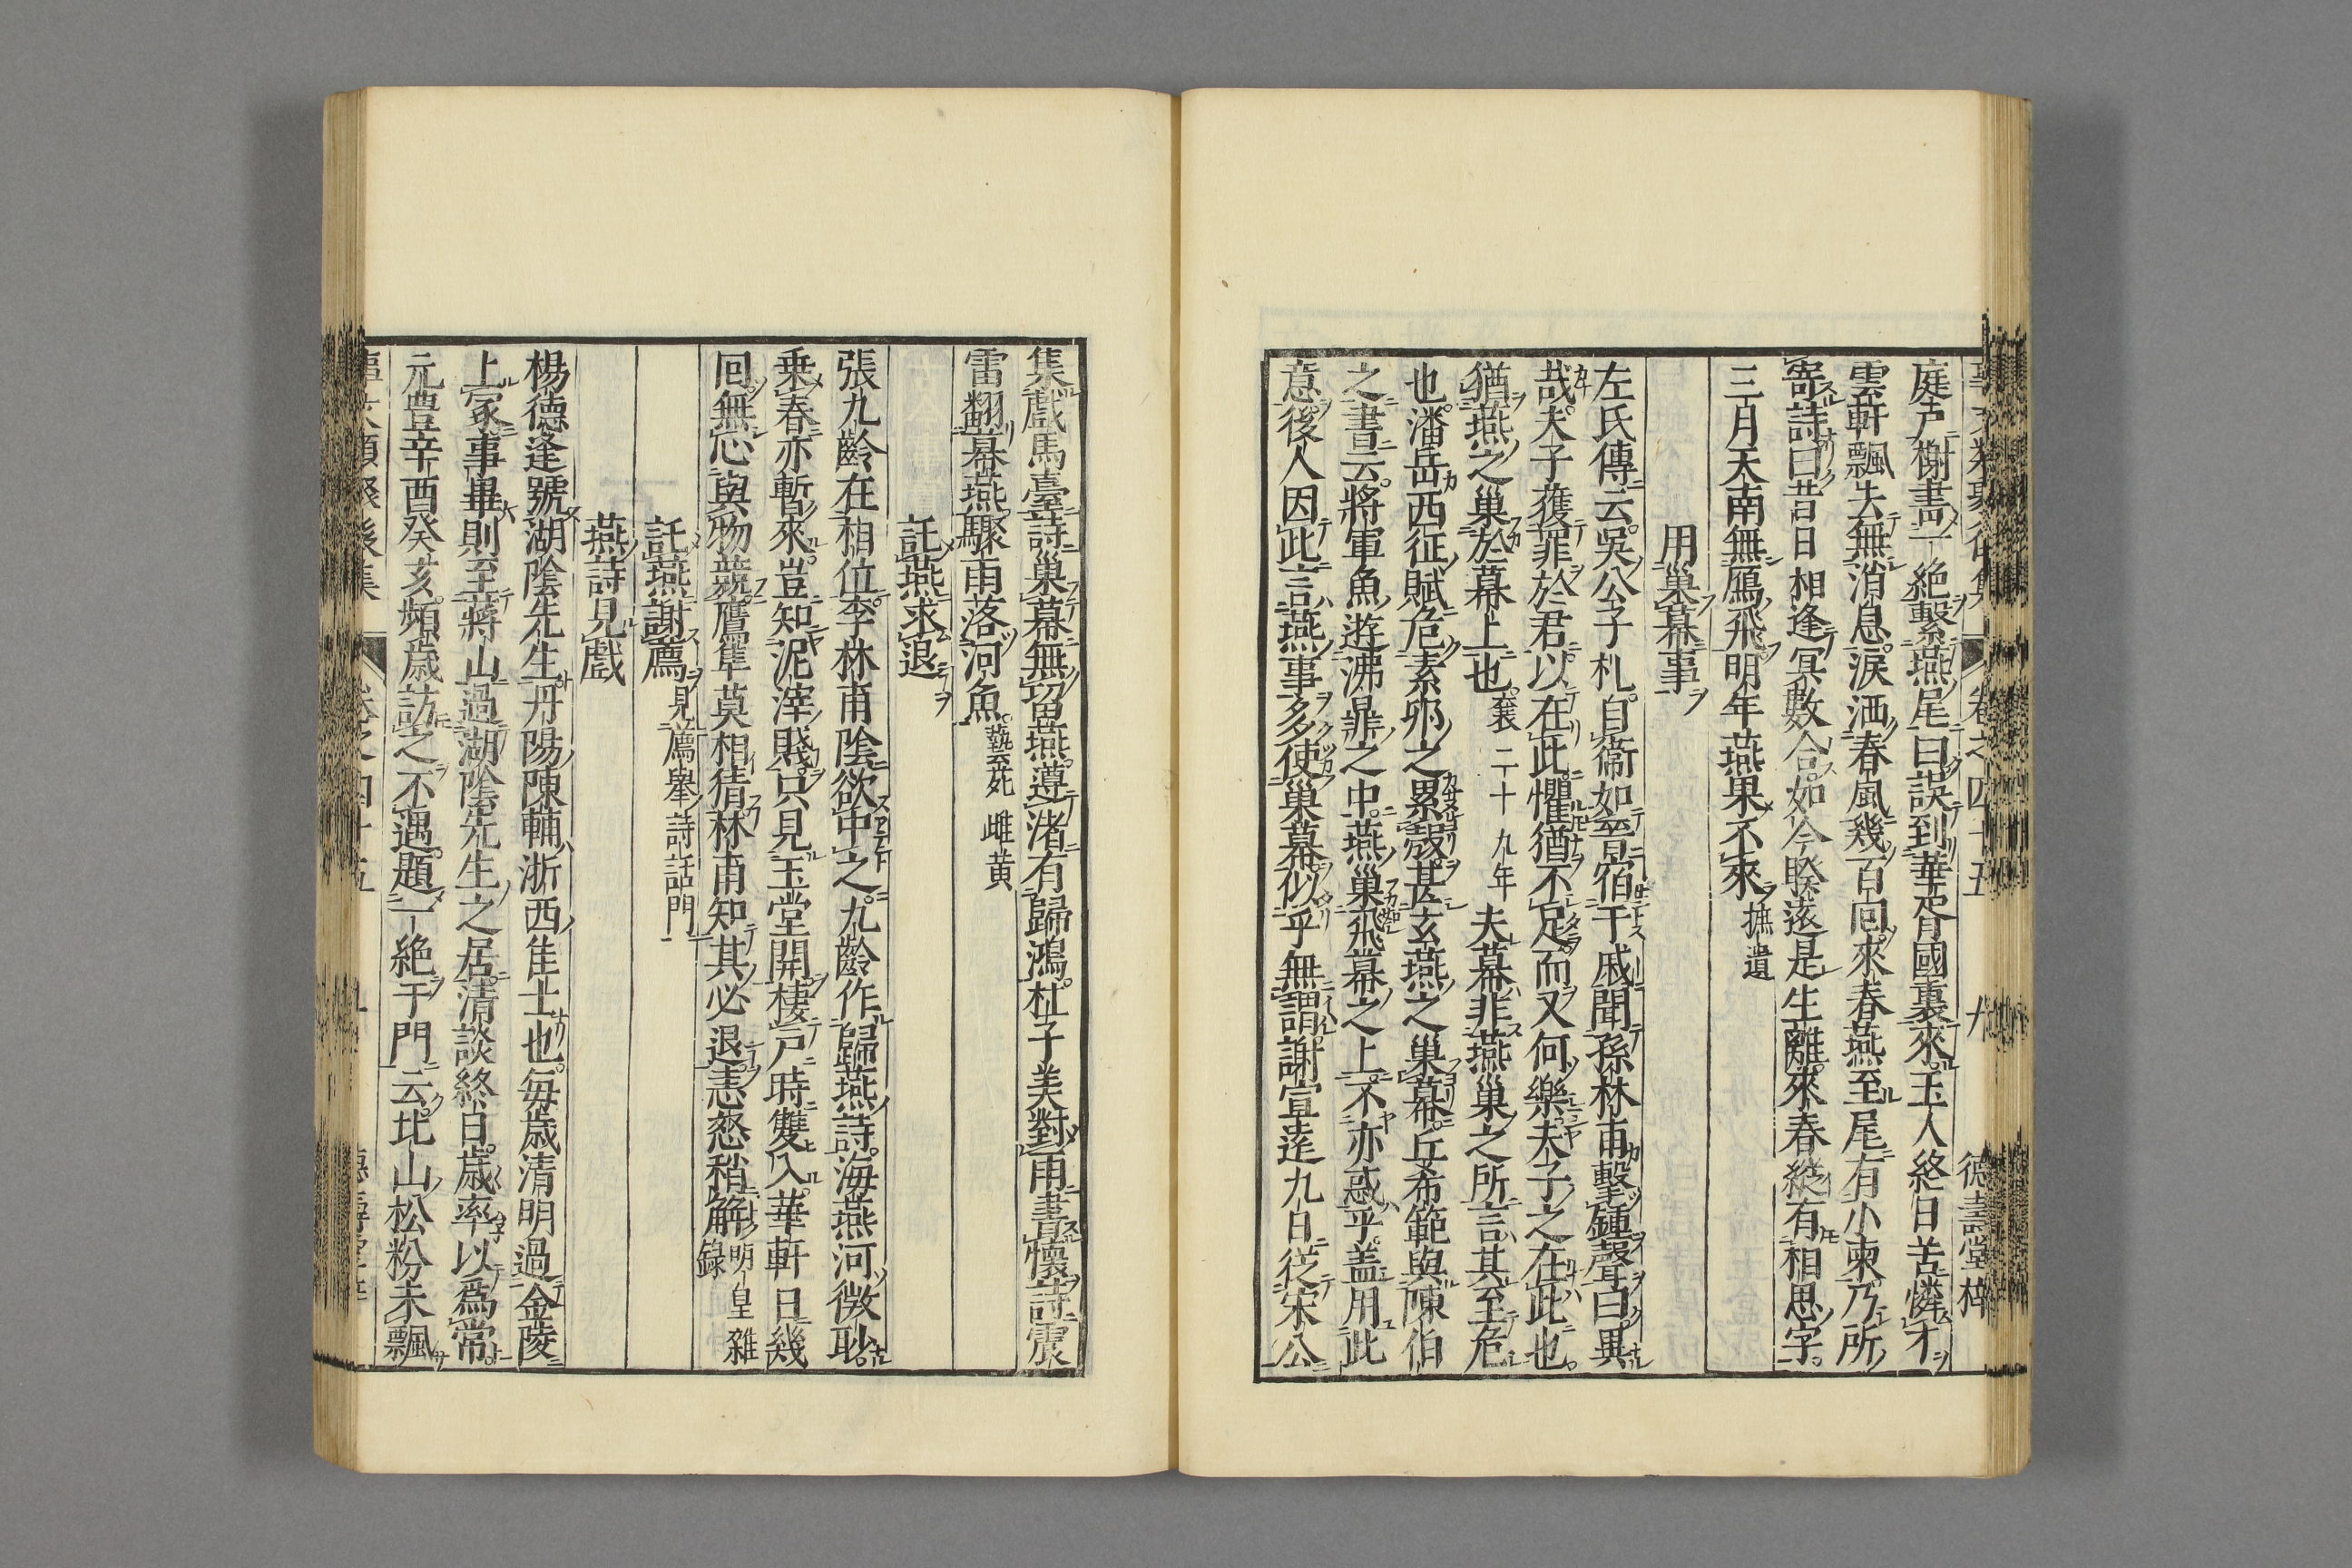 庭戸榭書一絶繫燕尾曰誤到華胥國裏來玉人終日苦憐才
雲軒飄去無消息淚洒春風幾百回來春燕至尾有小柬乃所
寄詩曰昔日相逢冥數合如今睽遠是生離來春縱有相思字
三月天南無鴈飛明年燕果不來摭遺
用巢幕事
左氏傳云吳公子札自衞如晉宿于戚聞孫林甫擊鍾聲曰異
哉夫子獲罪於君以在此懼猶不足而又何樂夫子之在此也
猶燕之巢於幕上也襄二十九年夫幕非燕巢之所言其至危
也潘岳西征賦危素卵之累殼甚玄燕之巢幕丘希範與陳伯
之書云將軍魚遊沸鼎之中燕巢飛幕之上不亦惑乎盖用此
意後人因此言燕事多使巢幕似乎無謂謝宣遠九日從宋公
集戲馬臺詩巢幕無留燕遵渚有歸鴻杜子美對雨書懷詩震
雷翻幕燕驟雨落河魚藝苑雌黄
託燕求退
張九齡在相位李林甫陰欲中之九齡作歸燕詩海燕河微眇
乗春亦暫來豈知泥滓賤只見玉堂開棲戸時雙入華軒日幾
回無心與物競鷹隼莫相猜林甫知其必退恚怒稍解明皇雜錄
託燕謝薦見薦舉詩話門
燕詩見戯
楊德逢號湖陰先生丹陽陳輔浙西佳士也毎歳清明過金陵
上冢事畢則至蔣山過湖陰先生之居清談終日歳率以爲常
元豊辛酉癸亥頻歳訪之不遇題一絶于門云北山松粉未飄